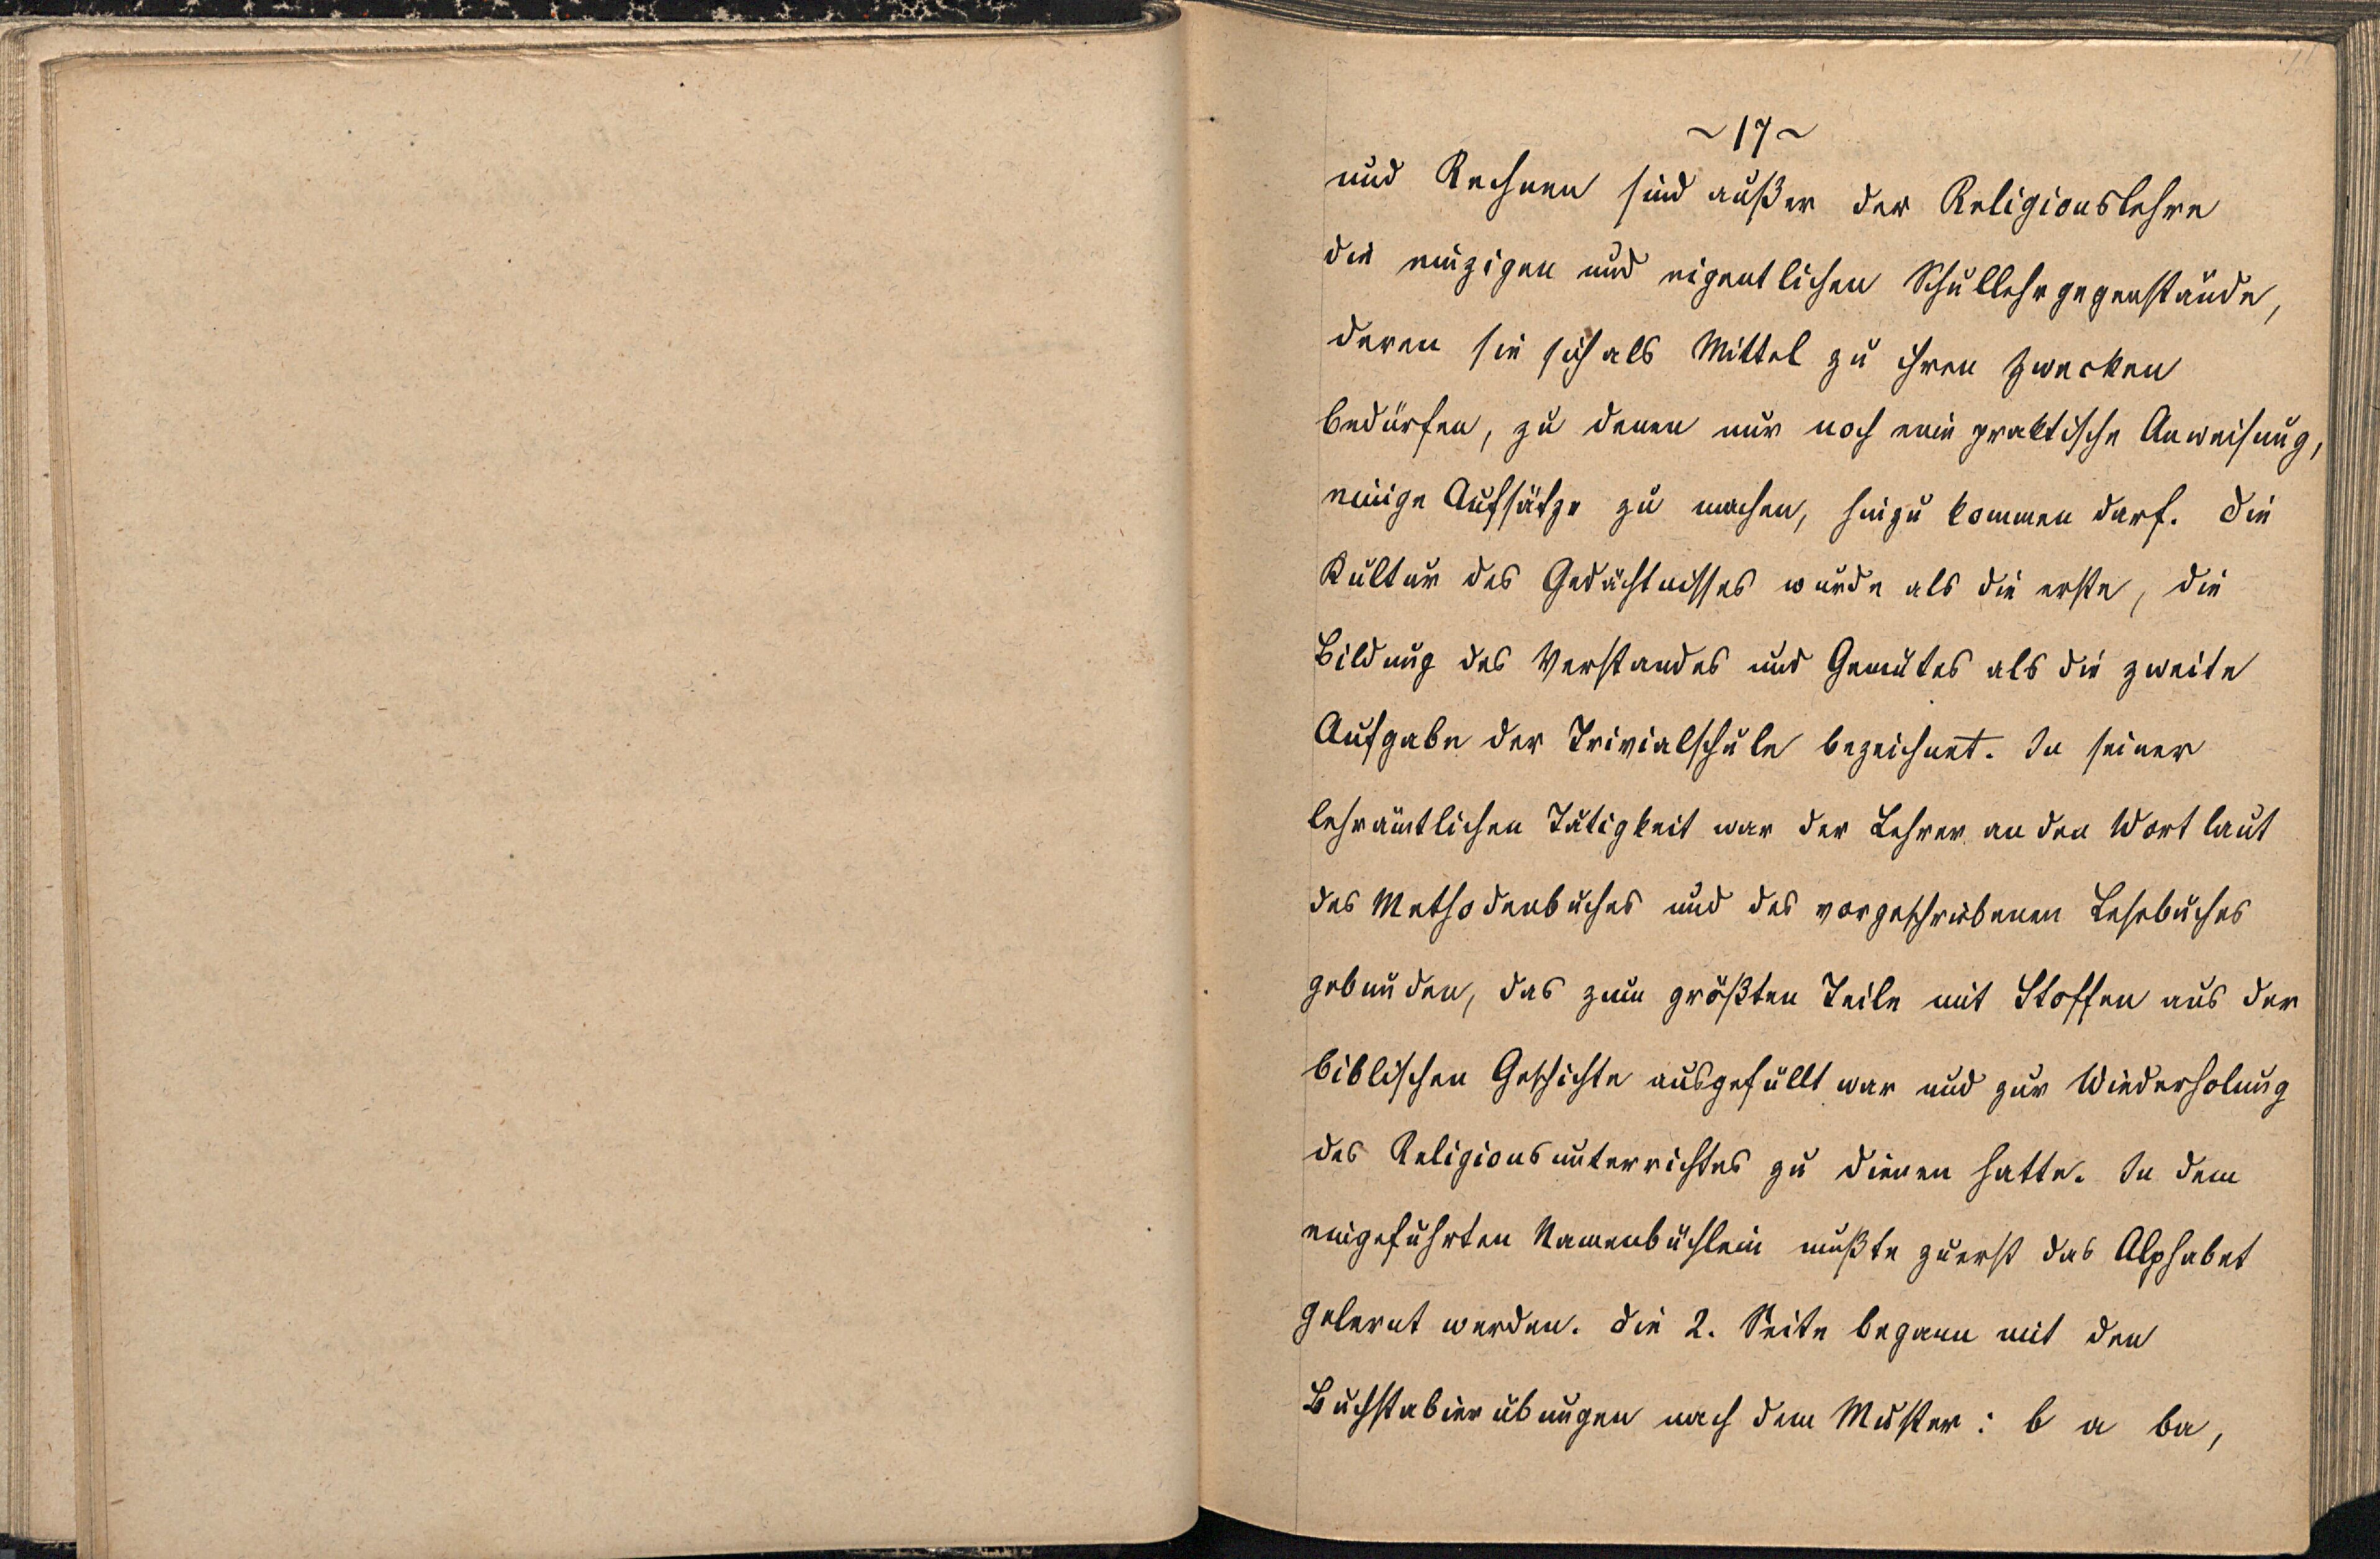 ~ 17 ~
und Rechnen sind außer der Religionslehre
die einzigen und eigentlichen Schullehrgegenstände,
deren sie sich als Mittel zu ihren Zwecken
bedürfen, zu denen nur noch eine praktische Anweisung,
einige Aufsätze zu machen, hinzu kommen darf. Die
Kultur des Gedächtnisses wurde als die erste, die
Bildung des Verstandes und Gemütes als die zweite
Aufgabe der Trivialschule bezeichnet. In seiner
lehrämtlichen Tätigkeit war der Lehrer an den Wortlaut
des Methodenbuches und des vorgeschriebenen Lesebuches
gebunden, das zum größten Teile mit Stoffen aus der
biblischen Geschichte ausgefüllt war und zur Wiederholung
des Religionsunterrichtes zu dienen hatte. In dem
eingeführten Namenbüchlein mußte zuerst das Alphabet
gelernt werden. Die 2. Seite begann mit den
Buchstabierübungen nach dem Muster: b a ba,